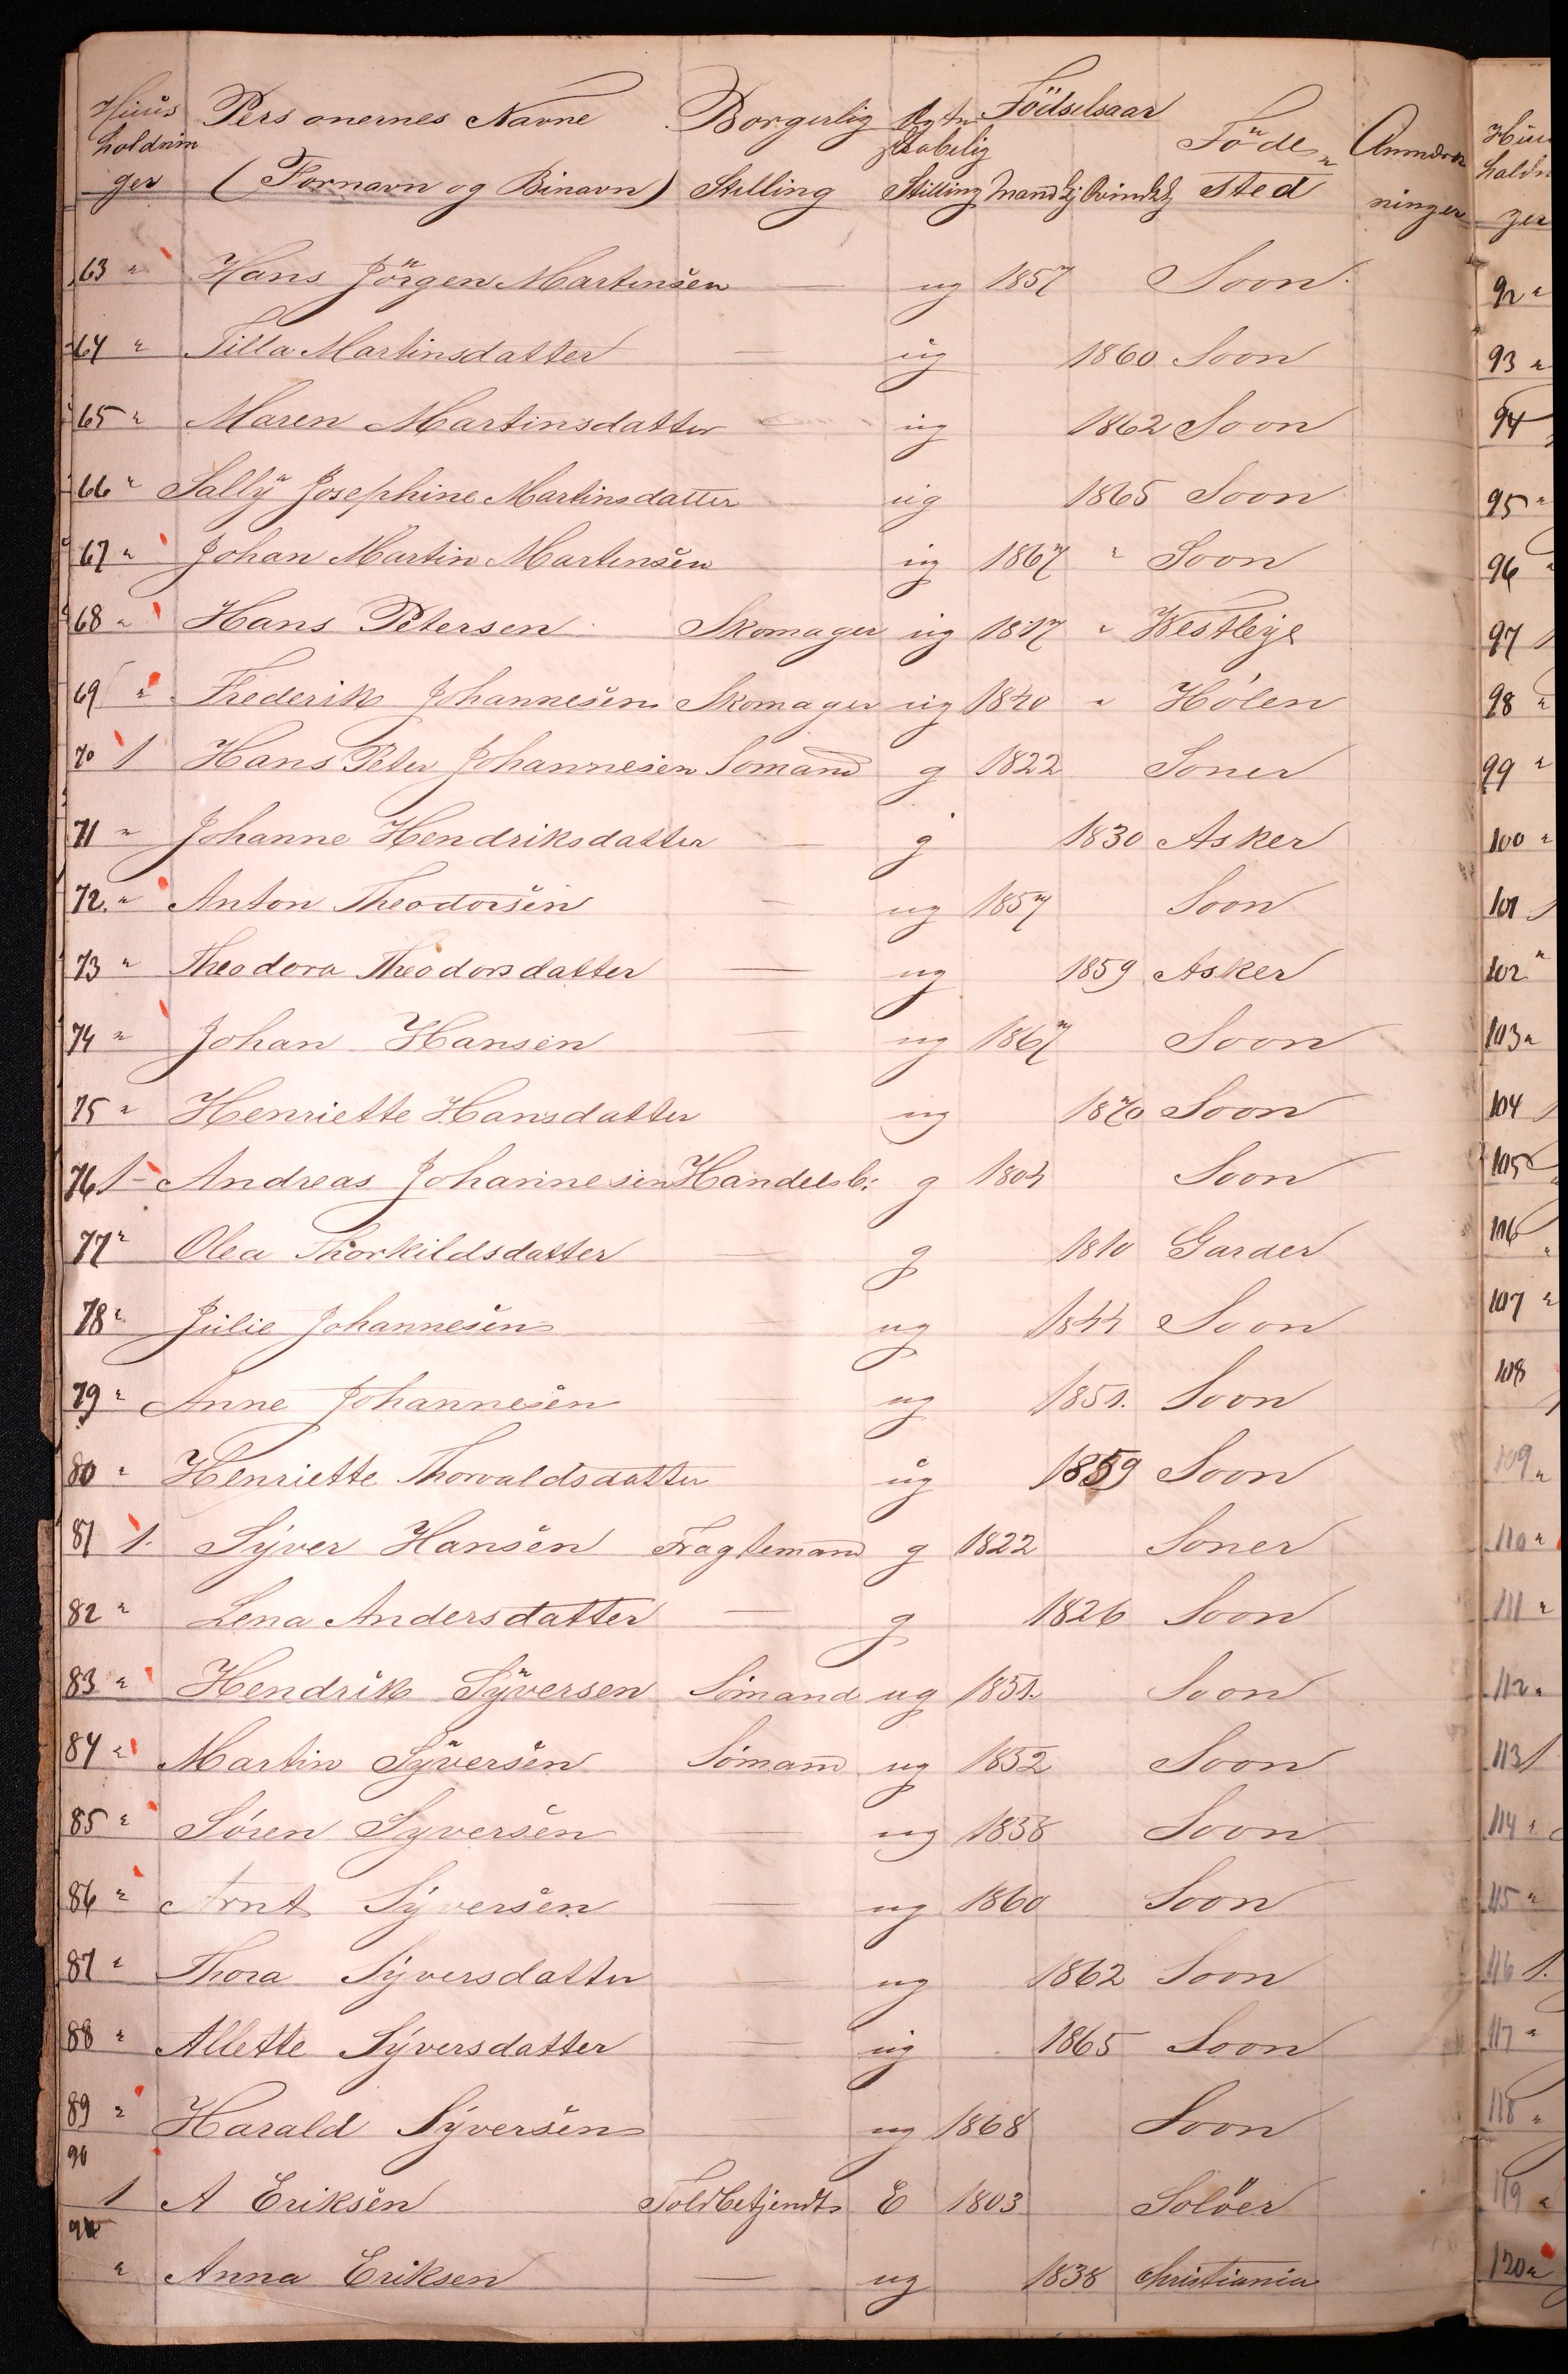 Huus Personernes Navne Borgerlig Ægte Födselsaar
holdnin skabelig Föde Anmærk
ger (Fornavn og Binavn) Stilling Stilling Mandkj Qvindkj Sted ninger
63 " Hans Jörgen Martinsen — ug 1857 Soon
64 " Tilla Martinsdatter — ug 1860 Soon
65 " Maren Martinsdatter — ug 1862 Soon
66 " Sallÿ Josephine Martinsdatter ug 1865 Soon
67 " Johan Martin Martinsen ug 1867 " Soon
68 " Hans Petersen Skomager ug 1817 " Westbye
69 " Frederik Johannesen Skomager ug 1840 " Hólen
70 1 Hans Peter Johannesen Somand g 1822 Soner
71 " Johanne Hendriksdatter — g 1830 Asker
72 " Anton Theodorsen — ug 1857 Soon
73 " Theodora Theodorsdatter — ug 1859 Asker
74 " Johan Hansen — ug 1867 Soon
75 " Henriette Hansdatter ug 1870 Soon
76 1 - Andreas Johannesen Handelsb: g 1804 Soon
77 " Olea Thorkildsdatter — g 1810 Garder
78 " Julie Johannesen — ug 1844 Soon
79 " Anne Johannesen — ug 1851. Soon
80 " Henriette Thorvaldsdatter ug 1859 Soon
81 1. Sÿver Hansen Fragtemand g 1822 Soner
82 " Lena Andersdatter — g 1826 Soon
83 " Hendrik Sÿversen Sómand ug 1851. Soon
84 " Martin Sÿversen Sómand ug 1852 Soon
85 " Sóren Syversen — ug 1858 Soon
86 " Arnt Sÿversen — ug 1860 Soon
87 " Thora Sÿversdatter — ug 1862 Soon
88 " Allette Sÿversdatter — ug 1865 Soon
89 " Harald Sÿversen — ug 1868 Soon
90
1 A Eriksen Toldbetjendt E 1803 Solöer
91
" Anna Eriksen — ug 1838 Christiania
Huu
holdn
ger
92 "
93 "
94
95 "
96 "
97 1
98 "
99 "
100 "
101
102 "
103 "
104
105
106 "
107 "
108
109 "
110 "
111 "
112 "
113 1
114 "
115 "
116 1.
117 "
118 "
119 "
120 "